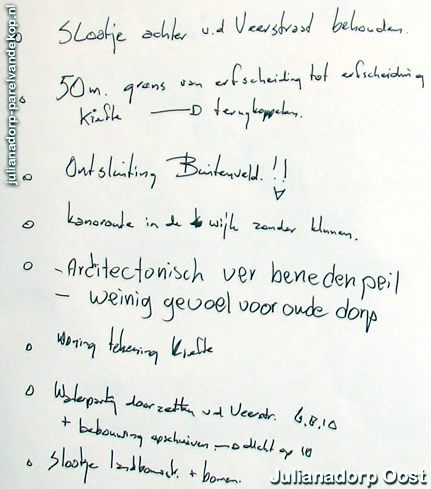 o Slootje achter v.d Veerstraat behouden.
o 50m. grens van erfscheiding tot erfscheiding
Kiefte —D terugkoppelen.
o Ontsluiting Buitenveld.!!
o kanoroute in de wijk zonder klunen.
o - Architectonisch ver beneden peil
- weinig gevoel voor oude dorp
o Woning tekening Kiefte
o Waterpartij doorzetten v.d Veerstr. 6.8.10
+ bebouwing opschuiven —D dicht op 10
o Slootje landbouwstr. + bomen.
julianadorp-parelvandekop.nl
Julianadorp Oost